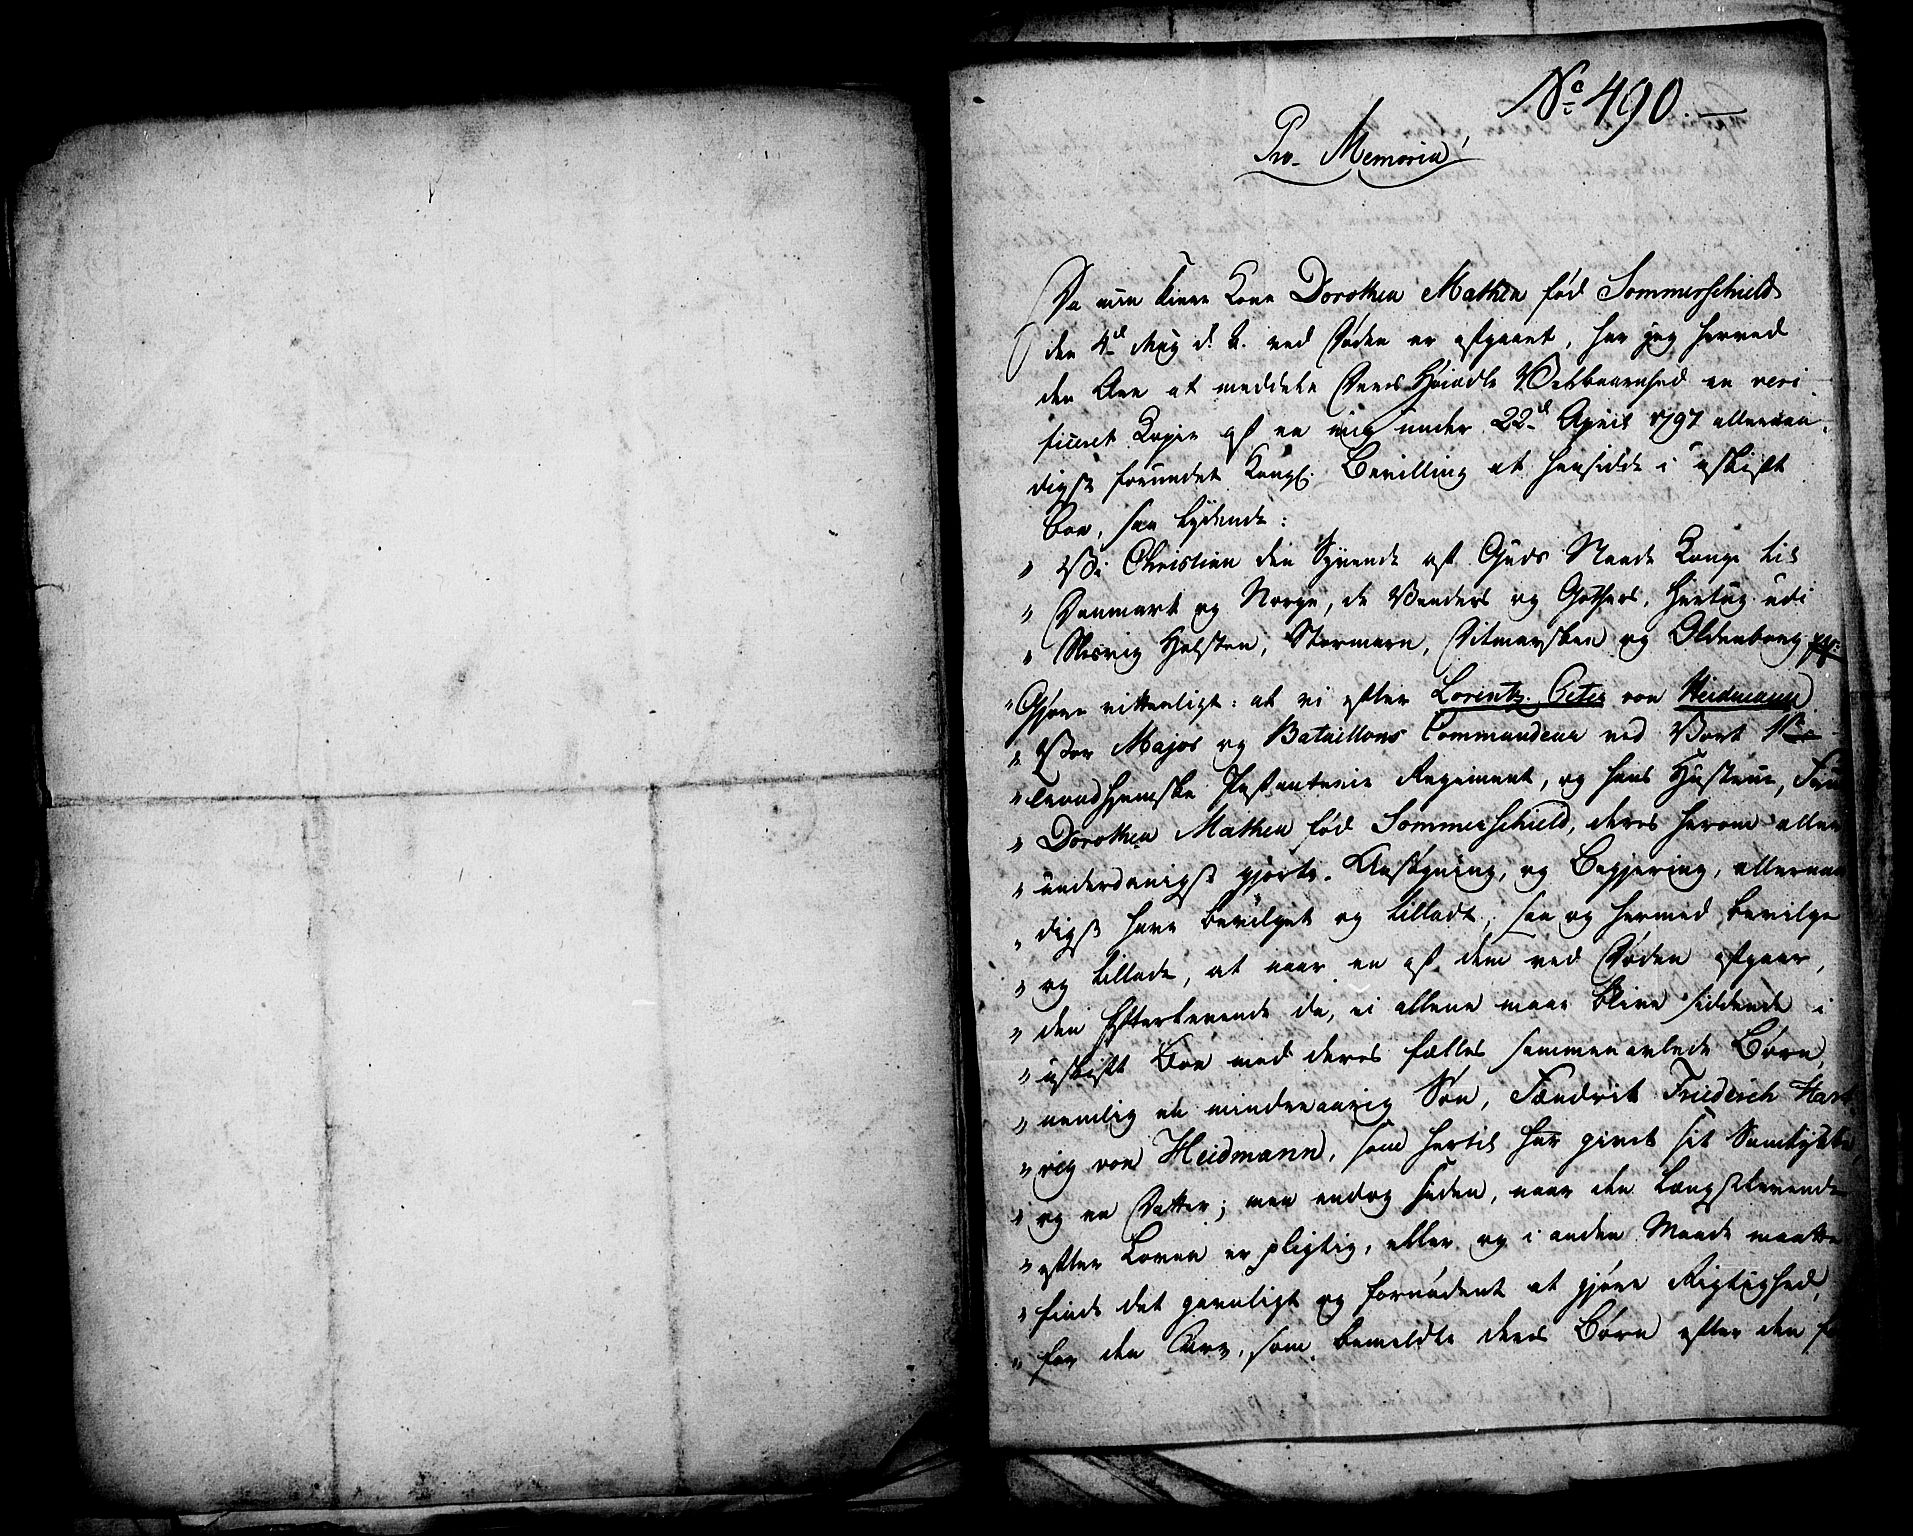 No 490.
Pro Memoria!
Da min kiere Kone Dorothea Mathea fød Sommerschield
den 4d May d. A. ved Døden er afgaaet, har jeg herved
den Ære at meddele Deres Høiædle Velbaarenhed en veri
ficeret Copie af en mig under 22d April 1797 allernaa-
digst forundet Kongl. Bevilling at hensidde i uskift
Boe, saa lydende:
" Vi Christian den Syvende af Guds Naade Konge til
" Danmark og Norge, de Venders og Gothers, Hertug udi
" Slesvig Holsten, Stormarn, Ditmarsken og Oldenborg
" Gjøre vitterligt: at vi efter Lorentz Peter von Heidmann
" Vor Major og Bataillons Commandeur ved Vort
" trondhjemske Infanterie Regiment, og hans Hustrue,
" Dorothea Mathea fød Sommerschield, deres herom aller
" underdanigst gjorte Ansøgning, og Begjering, allernaa
" digst have bevilget og tilladt, saa og hermed bevilge
" og tillade, at naar en af dem ved Døden afgaar,
" den Efterlevende da, ei allene maae blive siddende i
" uskift Boe med deres fælles sammenavlede Børn,
" nemlig en mindreaarig Søn, Fændrik Friederich Hart
" vig von Heidmann, som hertil har givet sit Samtykke,
" og en Datter; men endog siden, naar den Længstlevende
" efter Loven er pligtig, eller og i anden Maade maatte
" finde det gavnligt og fornødent at gjøre Rigtighed,
" for den Arv, som bemeldte deres Børn efter den